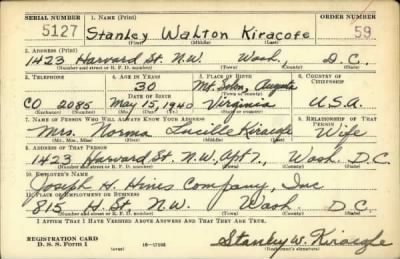 SERIAL NUMBER 1. NAME (Print) ORDER NUMBER
5127 Stanley Walton Kiracofe 59
(First) (Middle) (Last)
2. ADDRESS (Print)
1423 Harvard St. N.W. Wash. D.C.
(Number and street or R. F. D. number) (Town) (County) (State)
3. TELEPHONE 4. AGE IN YEARS 5. PLACE OF BIRTH 6. COUNTRY OF CITIZENSHIP
30 Mt. Solon, Augusta
DATE OF BIRTH
CO 2085 May 15, 1940 Virginia U.S.A.
(Exchange) (Number) (Mo.) (Day) (Yr.) (State or country)
7. NAME OF PERSON WHO WILL ALWAYS KNOW YOUR ADDRESS 8. RELATIONSHIP OF THAT PERSON
Mrs. Norma Lucille Kiracofe Wife
(Mr., Mrs., Miss) (First) (Middle) (Last)
9. ADDRESS OF THAT PERSON
1423 Harvard St. N.W., Apt 7., Wash. D.C.
(Number and street or R. F. D. number) (Town) (County) (State)
10. EMPLOYER'S NAME
Joseph H. Hines Company, Inc.
11. PLACE OF EMPLOYMENT OR BUSINESS
815 H. St. N.W. Wash. D.C.
(Number and street or R. F. D. number) (Town) (County) (State)
I AFFIRM THAT I HAVE VERIFIED ABOVE ANSWERS AND THAT THEY ARE TRUE.
REGISTRATION CARD
D. S. S. Form 1 (over) 16-17105 Stanley W. Kiracofe
(Registrant's signature)